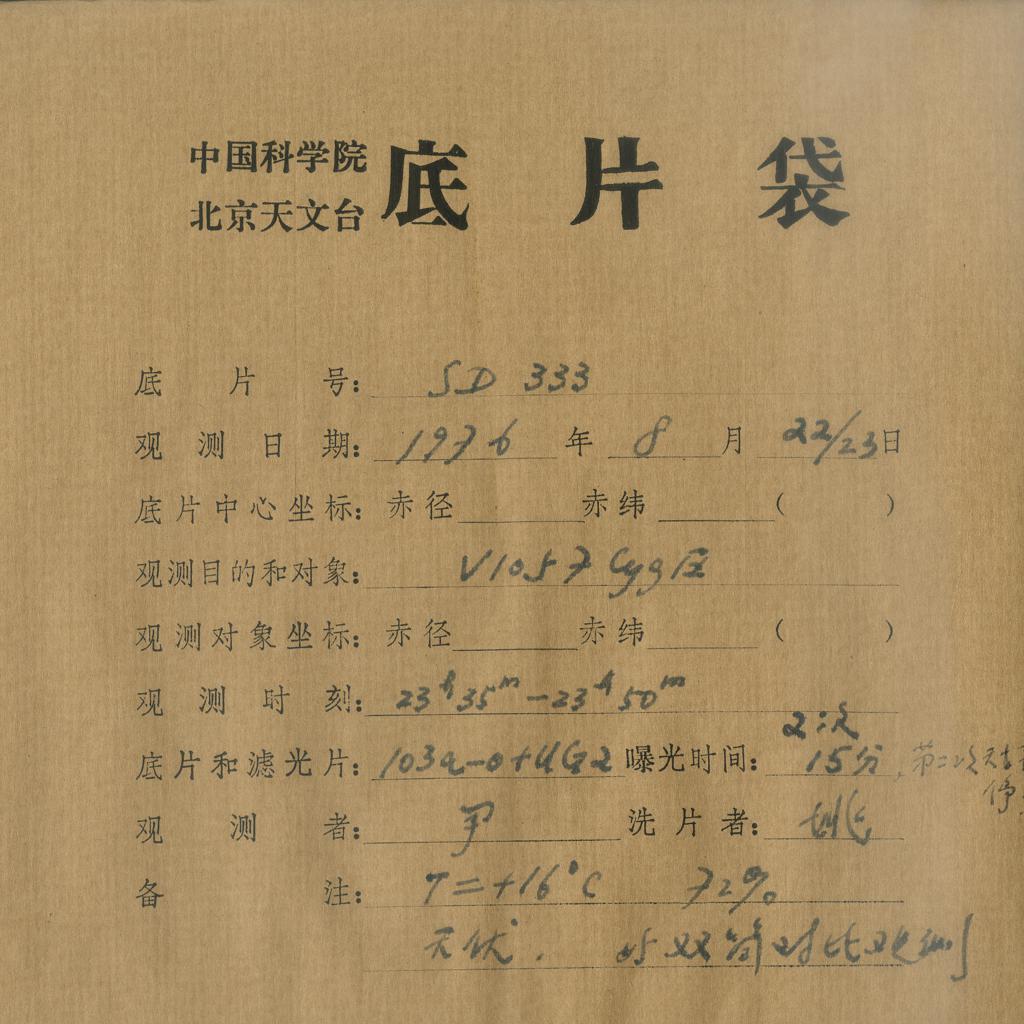 中国科学院
北京天文台 底片袋
底片号: SD 333
观测日期: 1976年 8月 22/23日
底片中心坐标: 赤径 赤纬 ( )
观测目的和对象: V1057 Cyg 区
观测对象坐标: 赤径 赤纬 ( )
观测时刻: 23h35m-23h50m
2次
底片和滤光片: 103a-o+UG2 曝光时间: 15分, 第二次天
停
观测者: 尹 洗片者: 姚
备注: T=+16°C 72%
天优. 与双筒对比观测